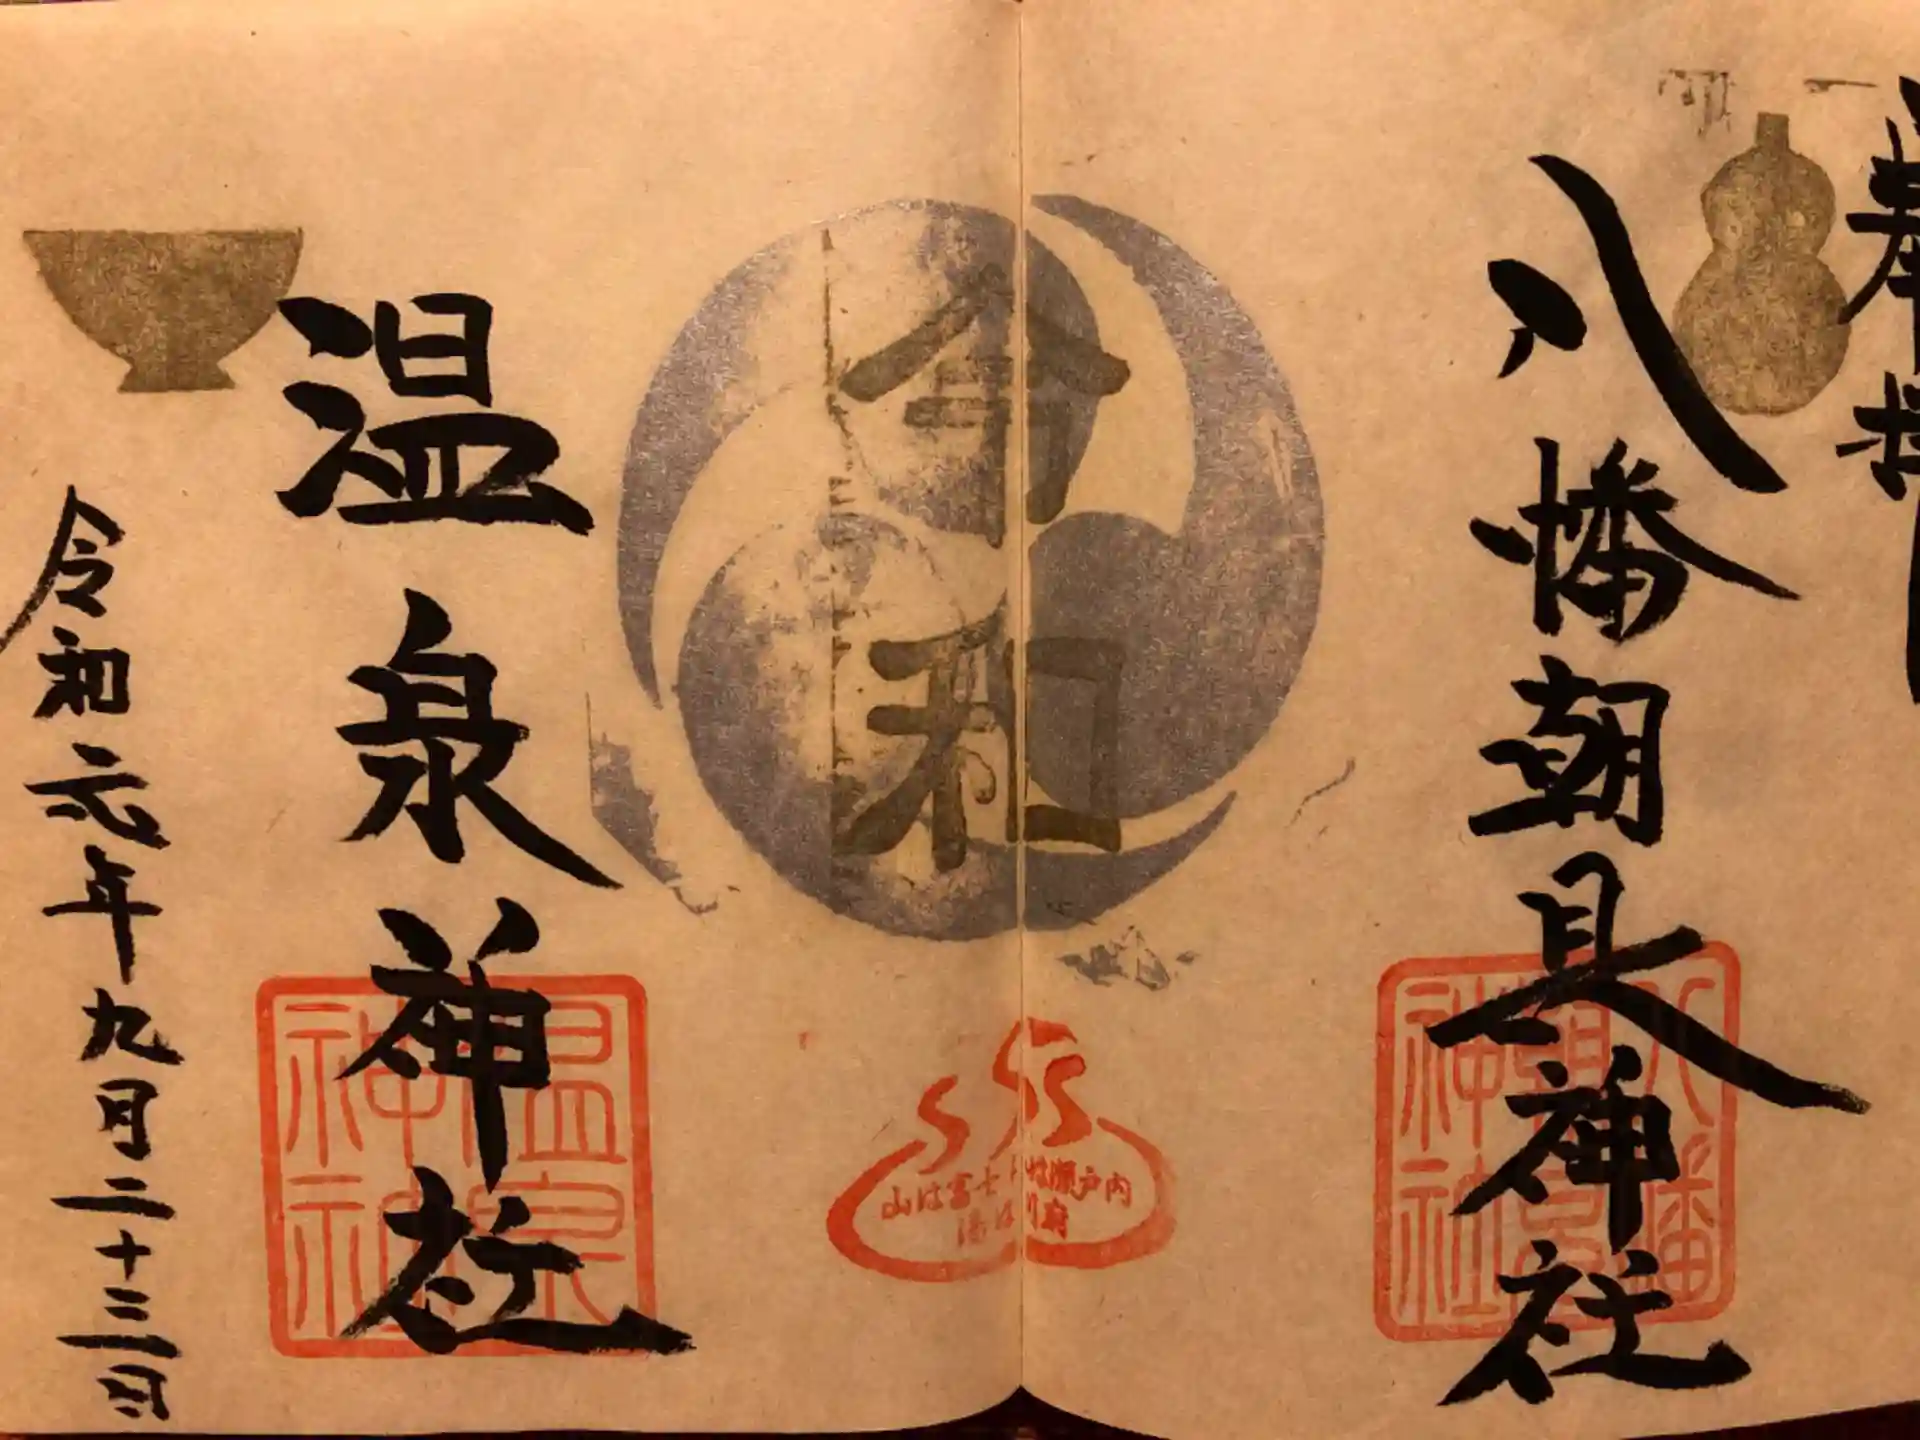 奉拝
八幡朝見神社
令和
山は富士 海は瀬戸内
湯は別府
温泉神社
令和元年九月二十三日
八幡朝見神社
温泉神社